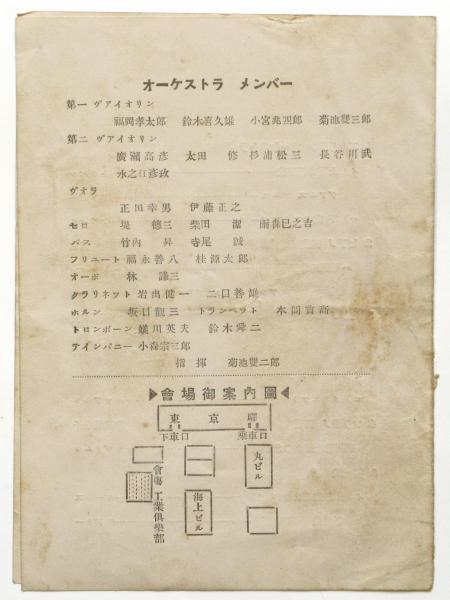 オーケストラ メンバー
第一 ヴァイオリン
福岡孝太郎 鈴木喜久雄 小宮兆四郎 菊池雙三郎
第二 ヴァイオリン
廣瀬高彦 太田 修 杉浦松三 長谷川武
水之江彦政
ヴオラ
正田幸男 伊藤正之
セロ 堤 德三 柴田 潔 雨森已之吉
バス 竹内 昇 寺尾 誠
フリユート 福永善八 桂源太郎
オーボ 林 謙三
クラリネット 岩出健一 二口善雄
ホルン 坂口龍三 トランペット 本間貢高
トロンボーン 蜷川英夫 鈴木舜二
テインパニー 小森宗三郎
指揮 菊池雙二郎
▶會場御案內圖◀
東京驛
下車口 乘車口
丸ビル
海上ビル
會場 工業俱樂部